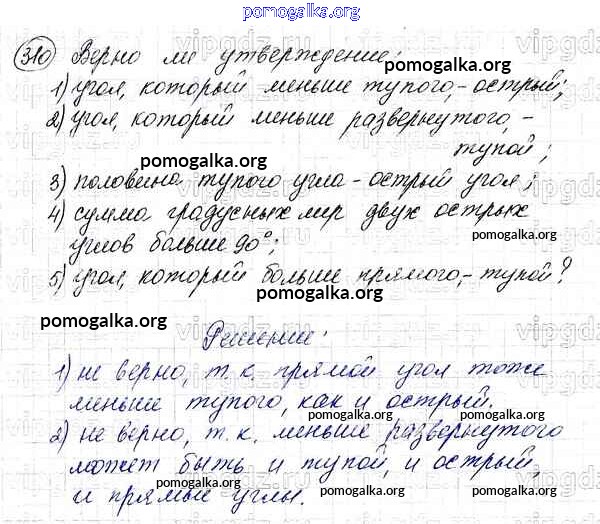 pomogalka.org
310 Верно ли утверждение:
1) угол, который меньше тупого,- острый;
2) угол, который меньше развернутого, -
тупой;
pomogalka.org
3) половина тупого угла - острый угол;
4) сумма градусных мир двух острых
углов больше 90°;
pomogalka.org
5) угол, который больше прямого, - тупой?
pomogalka.org
pomogalka.org
Решение:
1) не верно, т.к. прямой угол тоже
меньше тупого, как и острый.
pomogalka.org
2) не верно, т.к. меньше развернутого
может быть и тупой, и острый,
и прямые углы.
pomogalka.org
pomogalka.org